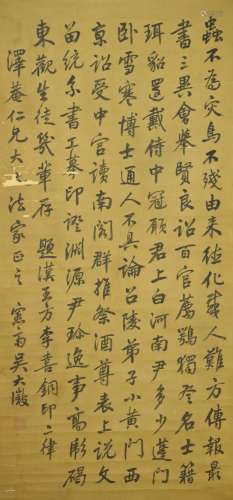 蟲不為災鳥不殘由来德化感人難方傳報最
書三異會舉賢良詔百官薦鶚獨登名士籍
珥貂還戴侍中冠願君上白河南尹多少蓬門
卧雪寒博士通人不具論召陵弟子小黃門西
京詔受中官讀南閣群推祭酒尊表上說文
留統系書工摹印證淵源尹珍逸事高彪碣
東觀生徒幾輩存 題漢王方李喜銅印二律
澤菴仁兄大人法家正之 窓斋吴大澂